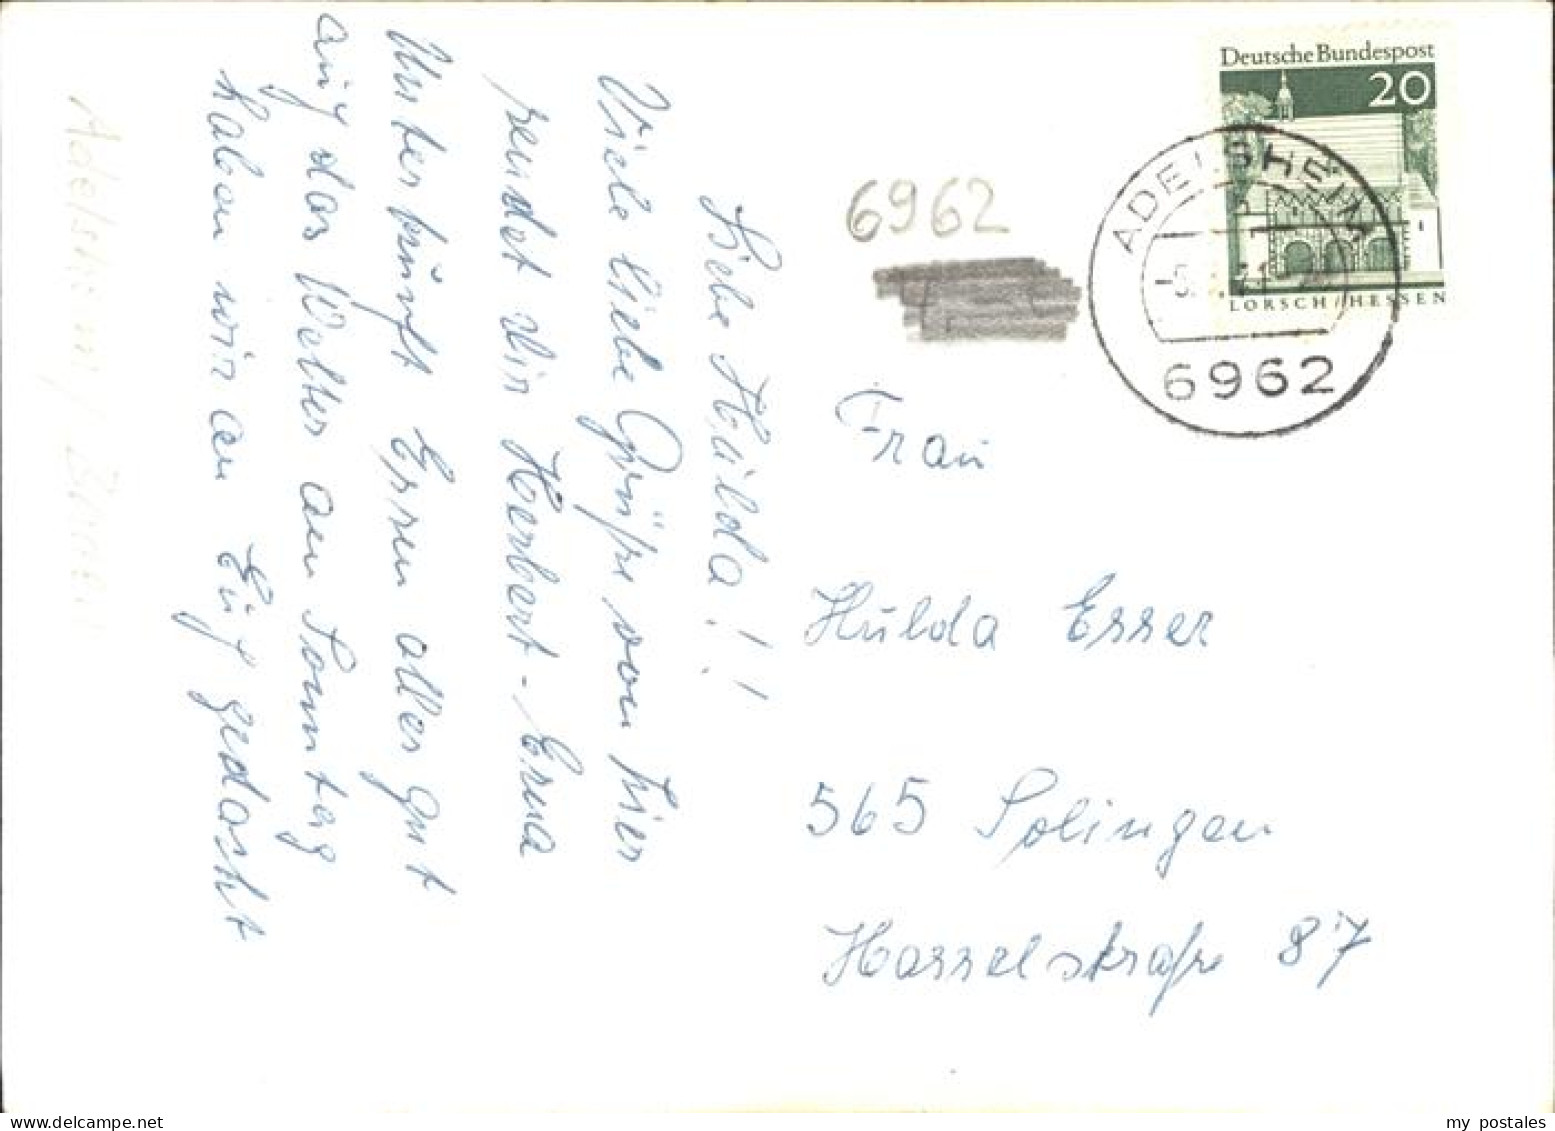 Liebe Hulda!!
Viele liebe Grüße von hier
sendet Dir Herbert - Erna
Unterkünft Essen alles gut
auf das Wetter am Sonntag
haben wir an Euch gedacht
Adelsheim / Baden
Deutsche Bundespost
20
LORSCH / HESSEN
ADELSHEIM
6962
6962
Frau
Hulda Esser
565 Solingen
Hasselstraße 87
my postales